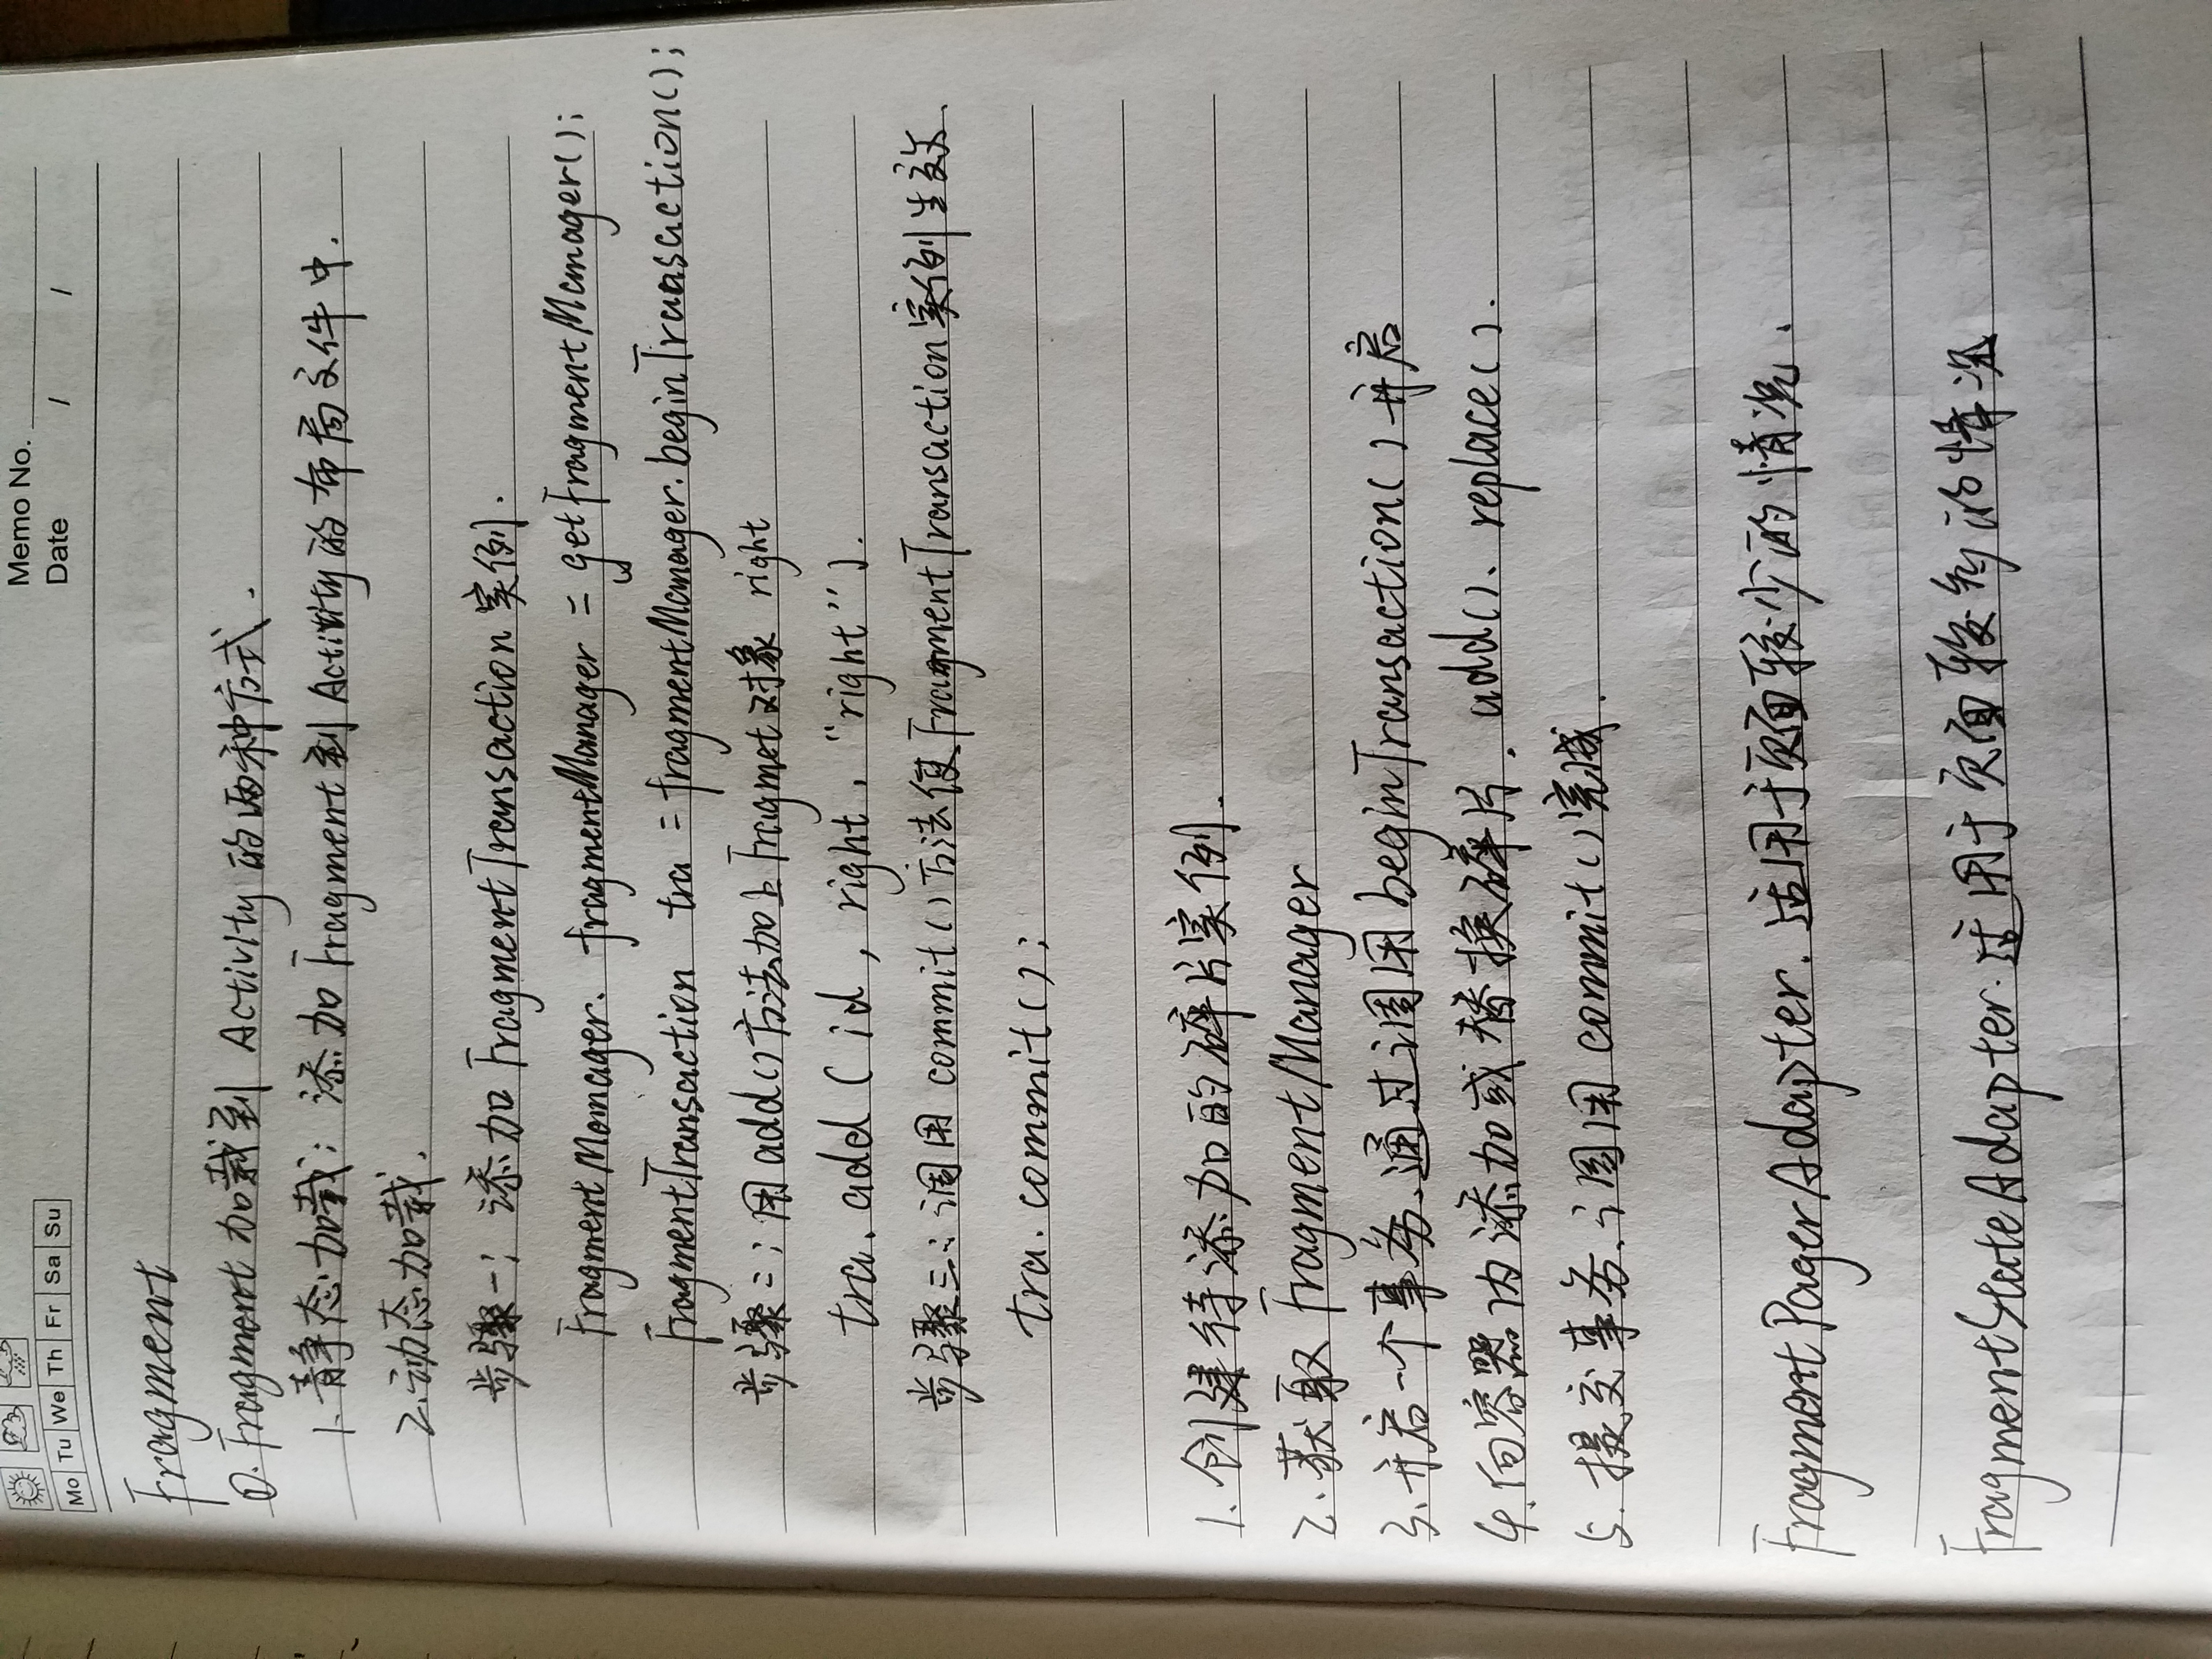 Memo No.
Mo Tu We Th Fr Sa Su
Date / /
Fragment
①. Fragment 加载到 Activity 的两种方式.
1. 静态加载: 添加 Fragment 到 Activity 的布局文件中.
2. 动态加载.
步骤一: 添加 FragmentTransaction 实例.
FragmentManager. fragmentManager = getFragmentManager();
FragmentTransaction tra = fragmentManager.beginTransaction();
步骤二: 用 add() 方法加上 Fragmet 对象 right
tra. add ( id , right , "right" ).
步骤三: 调用 commit() 方法使 FragmentTransaction 实例生效.
tra. commit();
1. 创建待添加的碎片实例.
2. 获取 FragmentManager
3. 开启一个事务、通过调用 beginTransaction() 开启
4. 向容器内添加或替换碎片. add()、replace().
5. 提交事务、调用 commit() 完成.
FragmentPagerAdapter. 适用于页面较少的情况.
FragmentStateAdapter. 适用于页面较多的情况